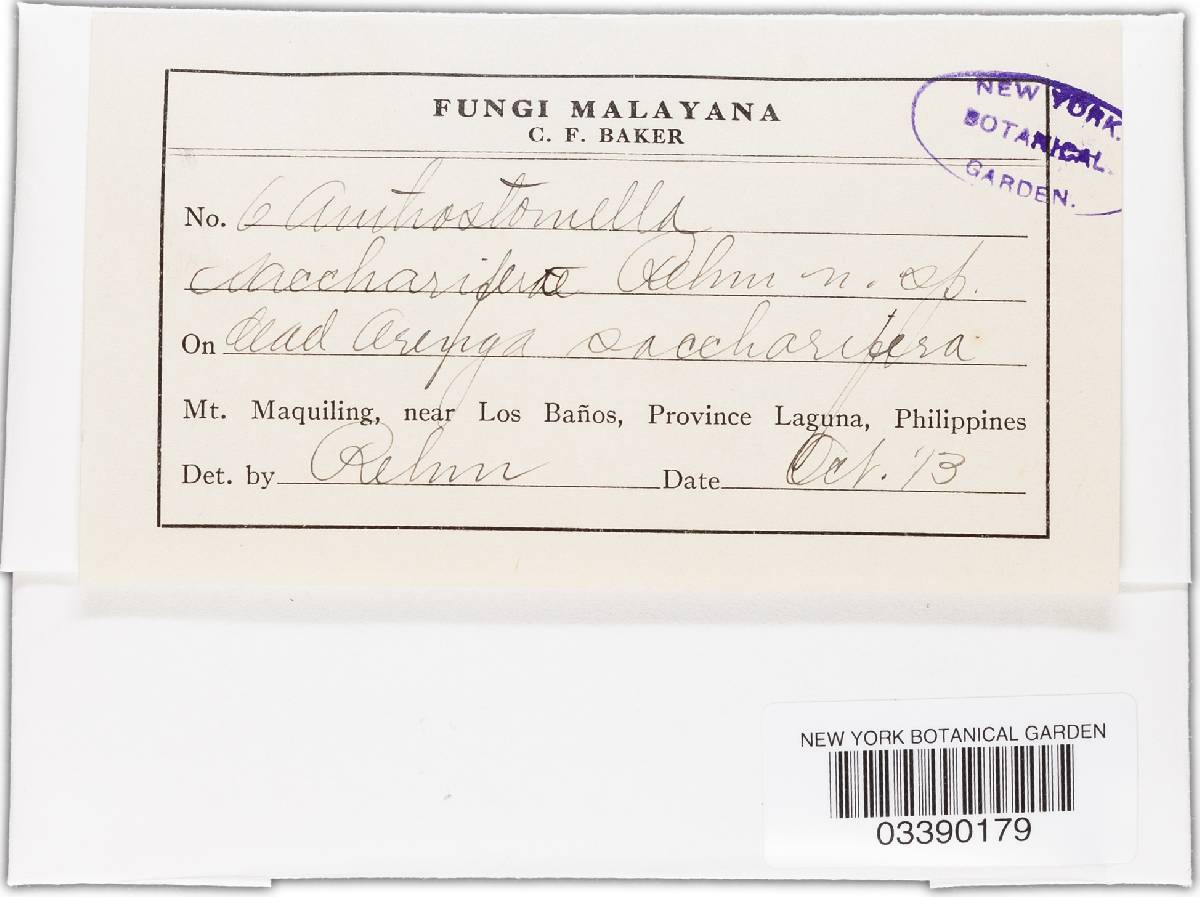 FUNGI MALAYANA
C. F. BAKER
NEW YORK
BOTANICAL
GARDEN.
No. 6 Anthostomella
sacchariferae Rehm n. sp.
On dead Arenga saccharifera
Mt. Maquiling, near Los Baños, Province Laguna, Philippines
Det. by Rehm Date Oct. '13
NEW YORK BOTANICAL GARDEN
03390179